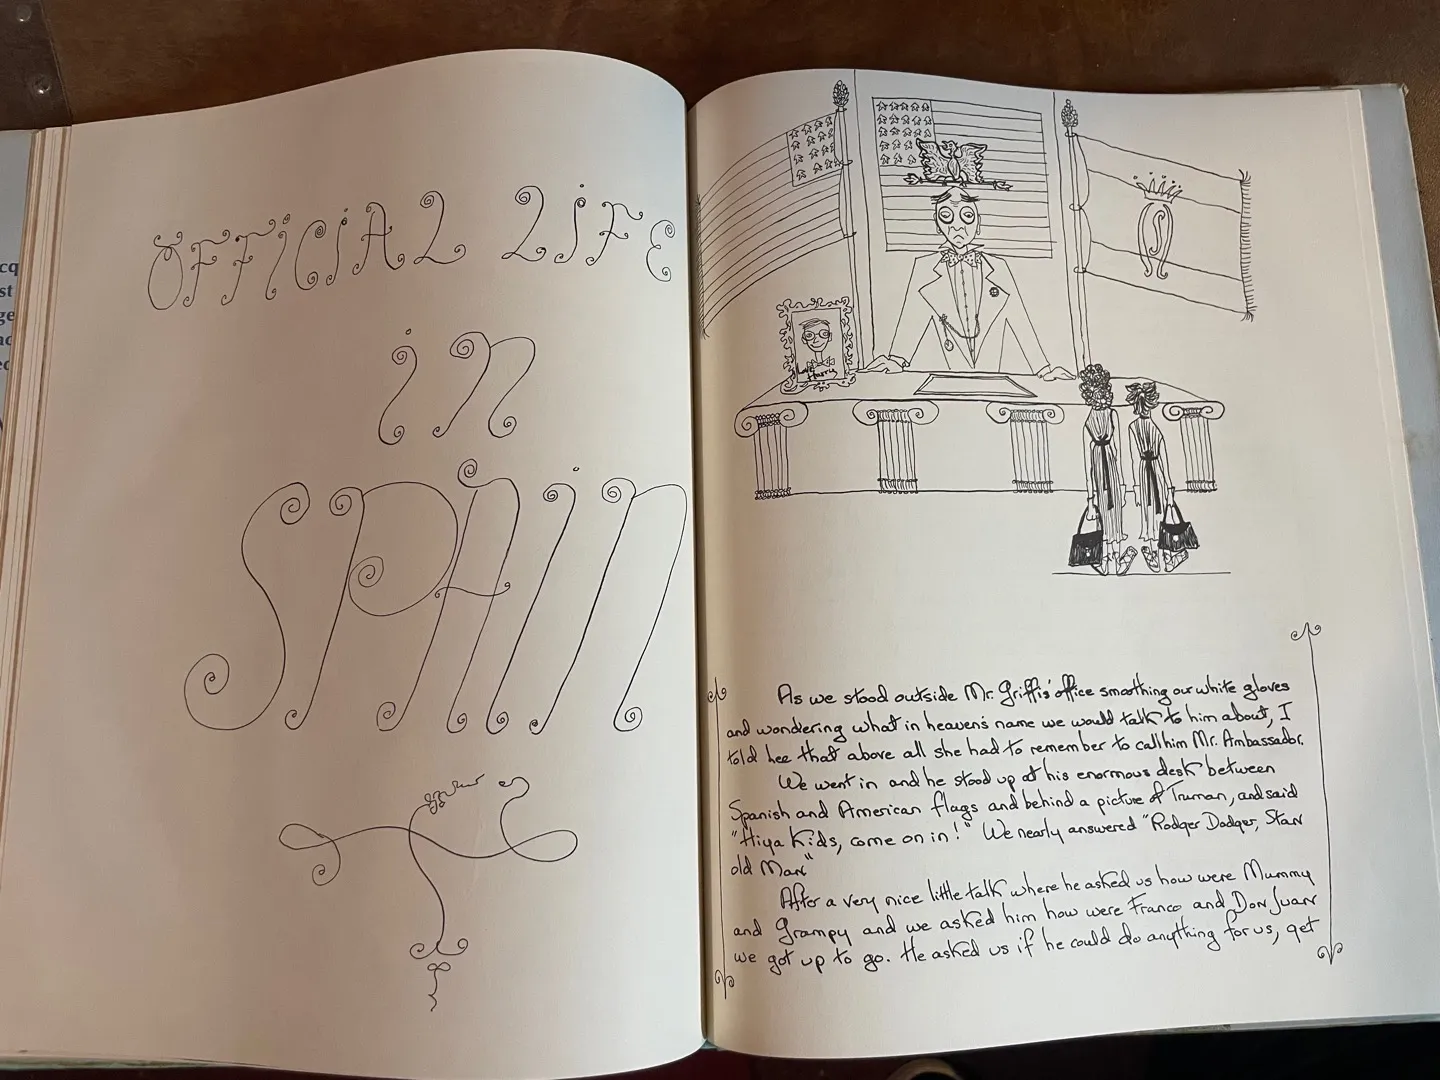 OFFICIAL LIFE
in
SPAIN
Love
Harry
As we stood outside Mr. Griffis' office smoothing our white gloves
and wondering what in heaven's name we would talk to him about, I
told her that above all she had to remember to call him Mr. Ambassador.
We went in and he stood up at his enormous desk between
Spanish and American flags and behind a picture of Truman, and said
"Hiya Kids, come on in!" We nearly answered "Rodger Dodger, Stan
old Man"
After a very nice little talk where he asked us how were Mummy
and Grampy and we asked him how were Franco and Don Juan
we got up to go. He asked us if he could do anything for us, get